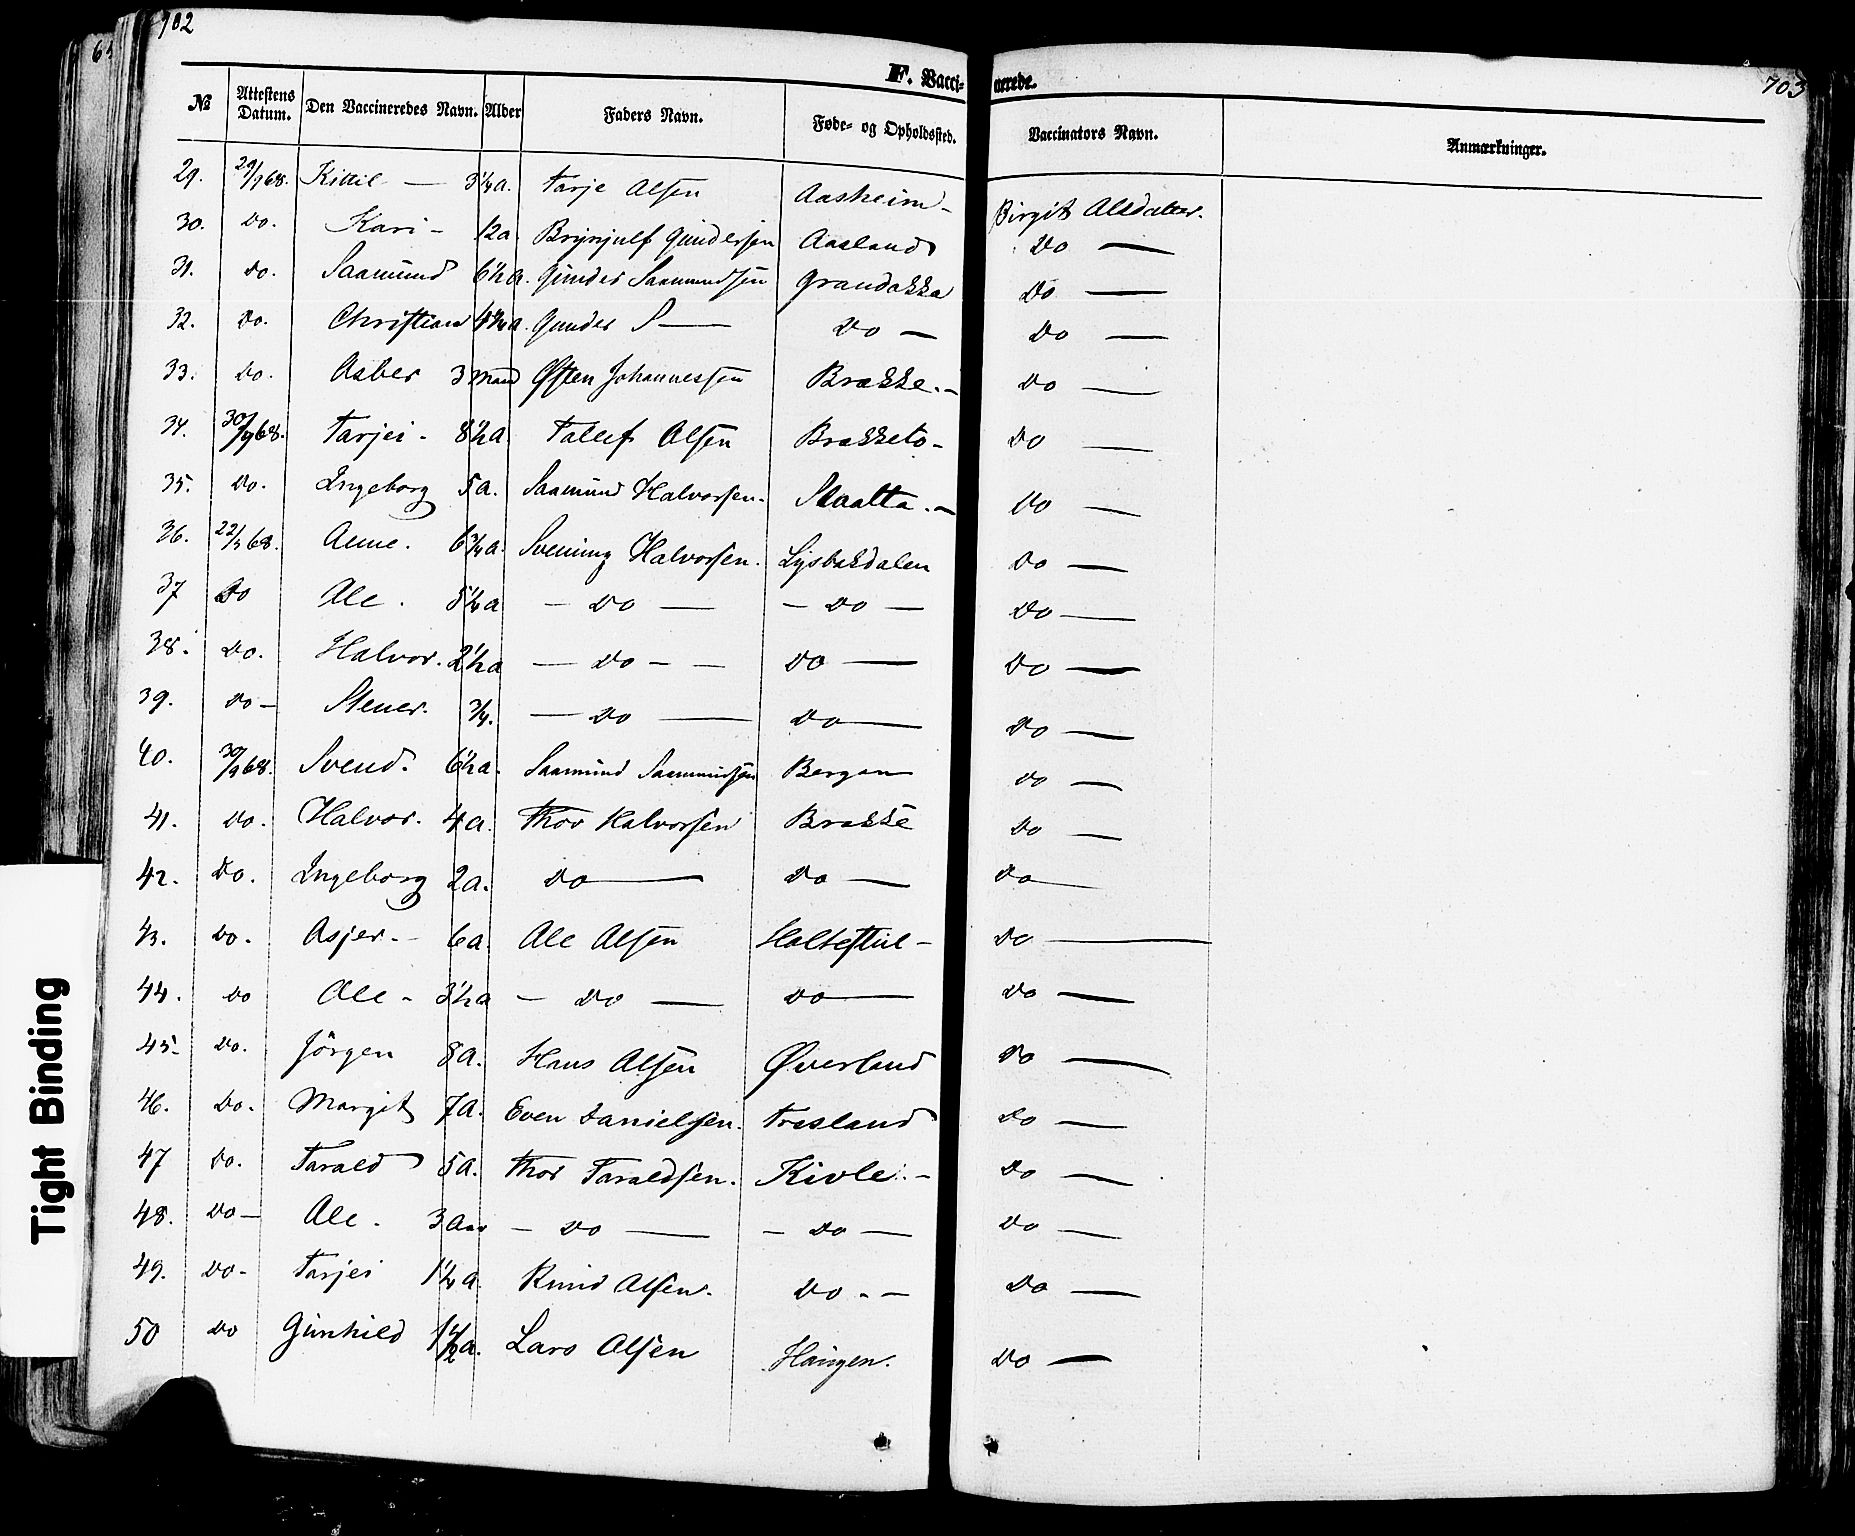 702
703
F. Vacci- nerede.
№ Attestens Datum. Den Vaccineredes Navn. Alder Faders Navn. Føde- og Opholdssted. Vaccinators Navn. Anmærkninger.
29. 29/9 68. Kittil — 3¼ a. Tarje Olsen Aasheim — Birgit Olsdatter.
30. Do. Kari - 12 a Brynjulf Gundersen Aasland Do —
31. Do. Saamund 6½ a. Gunder Saamundsen Grandokka Do —
32. Do. Christian a. Gunder S — Do — Do —
33. Do. Asber 3 Maan Østen Johannessen Brække. — Do —
34. 30/9 68. Tarjei - 8½ a Tallef Olsen Brækketo - Do —
35. Do. Ingeborg 5 a. Saamund Halvorsen. Staalta. — Do —
36. 68. Anne. 6¾ a. Svening Halvorsen. Lysbakdalen Do —
37 Do Ole. a — Do — — Do — Do —
38. Do. Halvor. 2½ a — Do — — Do — Do —
39. Do — Stener. ¾. — Do — Do — Do —
40. 30/9 68. Svend. 6½ a. Saamund Saamundsen Bergan Do —
41. Do. Halvor. 4 a. Thor Halvorsen Brække Do —
42. Do. Ingeborg 2 a. Do — Do — Do —
43. Do. Asjer. - 6 a. Ole Olsen Holtestul — Do —
44. Do Ole - 3½ a — Do — Do — Do —
45. Do. Jörgen 8 a. Hans Olsen Øverland Do —
46. Do. Margit 7 a. Even Danielsen. Træsland Do —
47 Do. Tarald 5 a. Thor Taraldsen. Kivle. — Do —
48. Do — Ole. 3 Aar — Do — — Do — Do —
49. Do - Tarjei 1¼ a. Knud Olsen. Do. — Do —
50 Do Gunhild 1½ a. Lars Olsen Haugen. Do —
Tight Binding